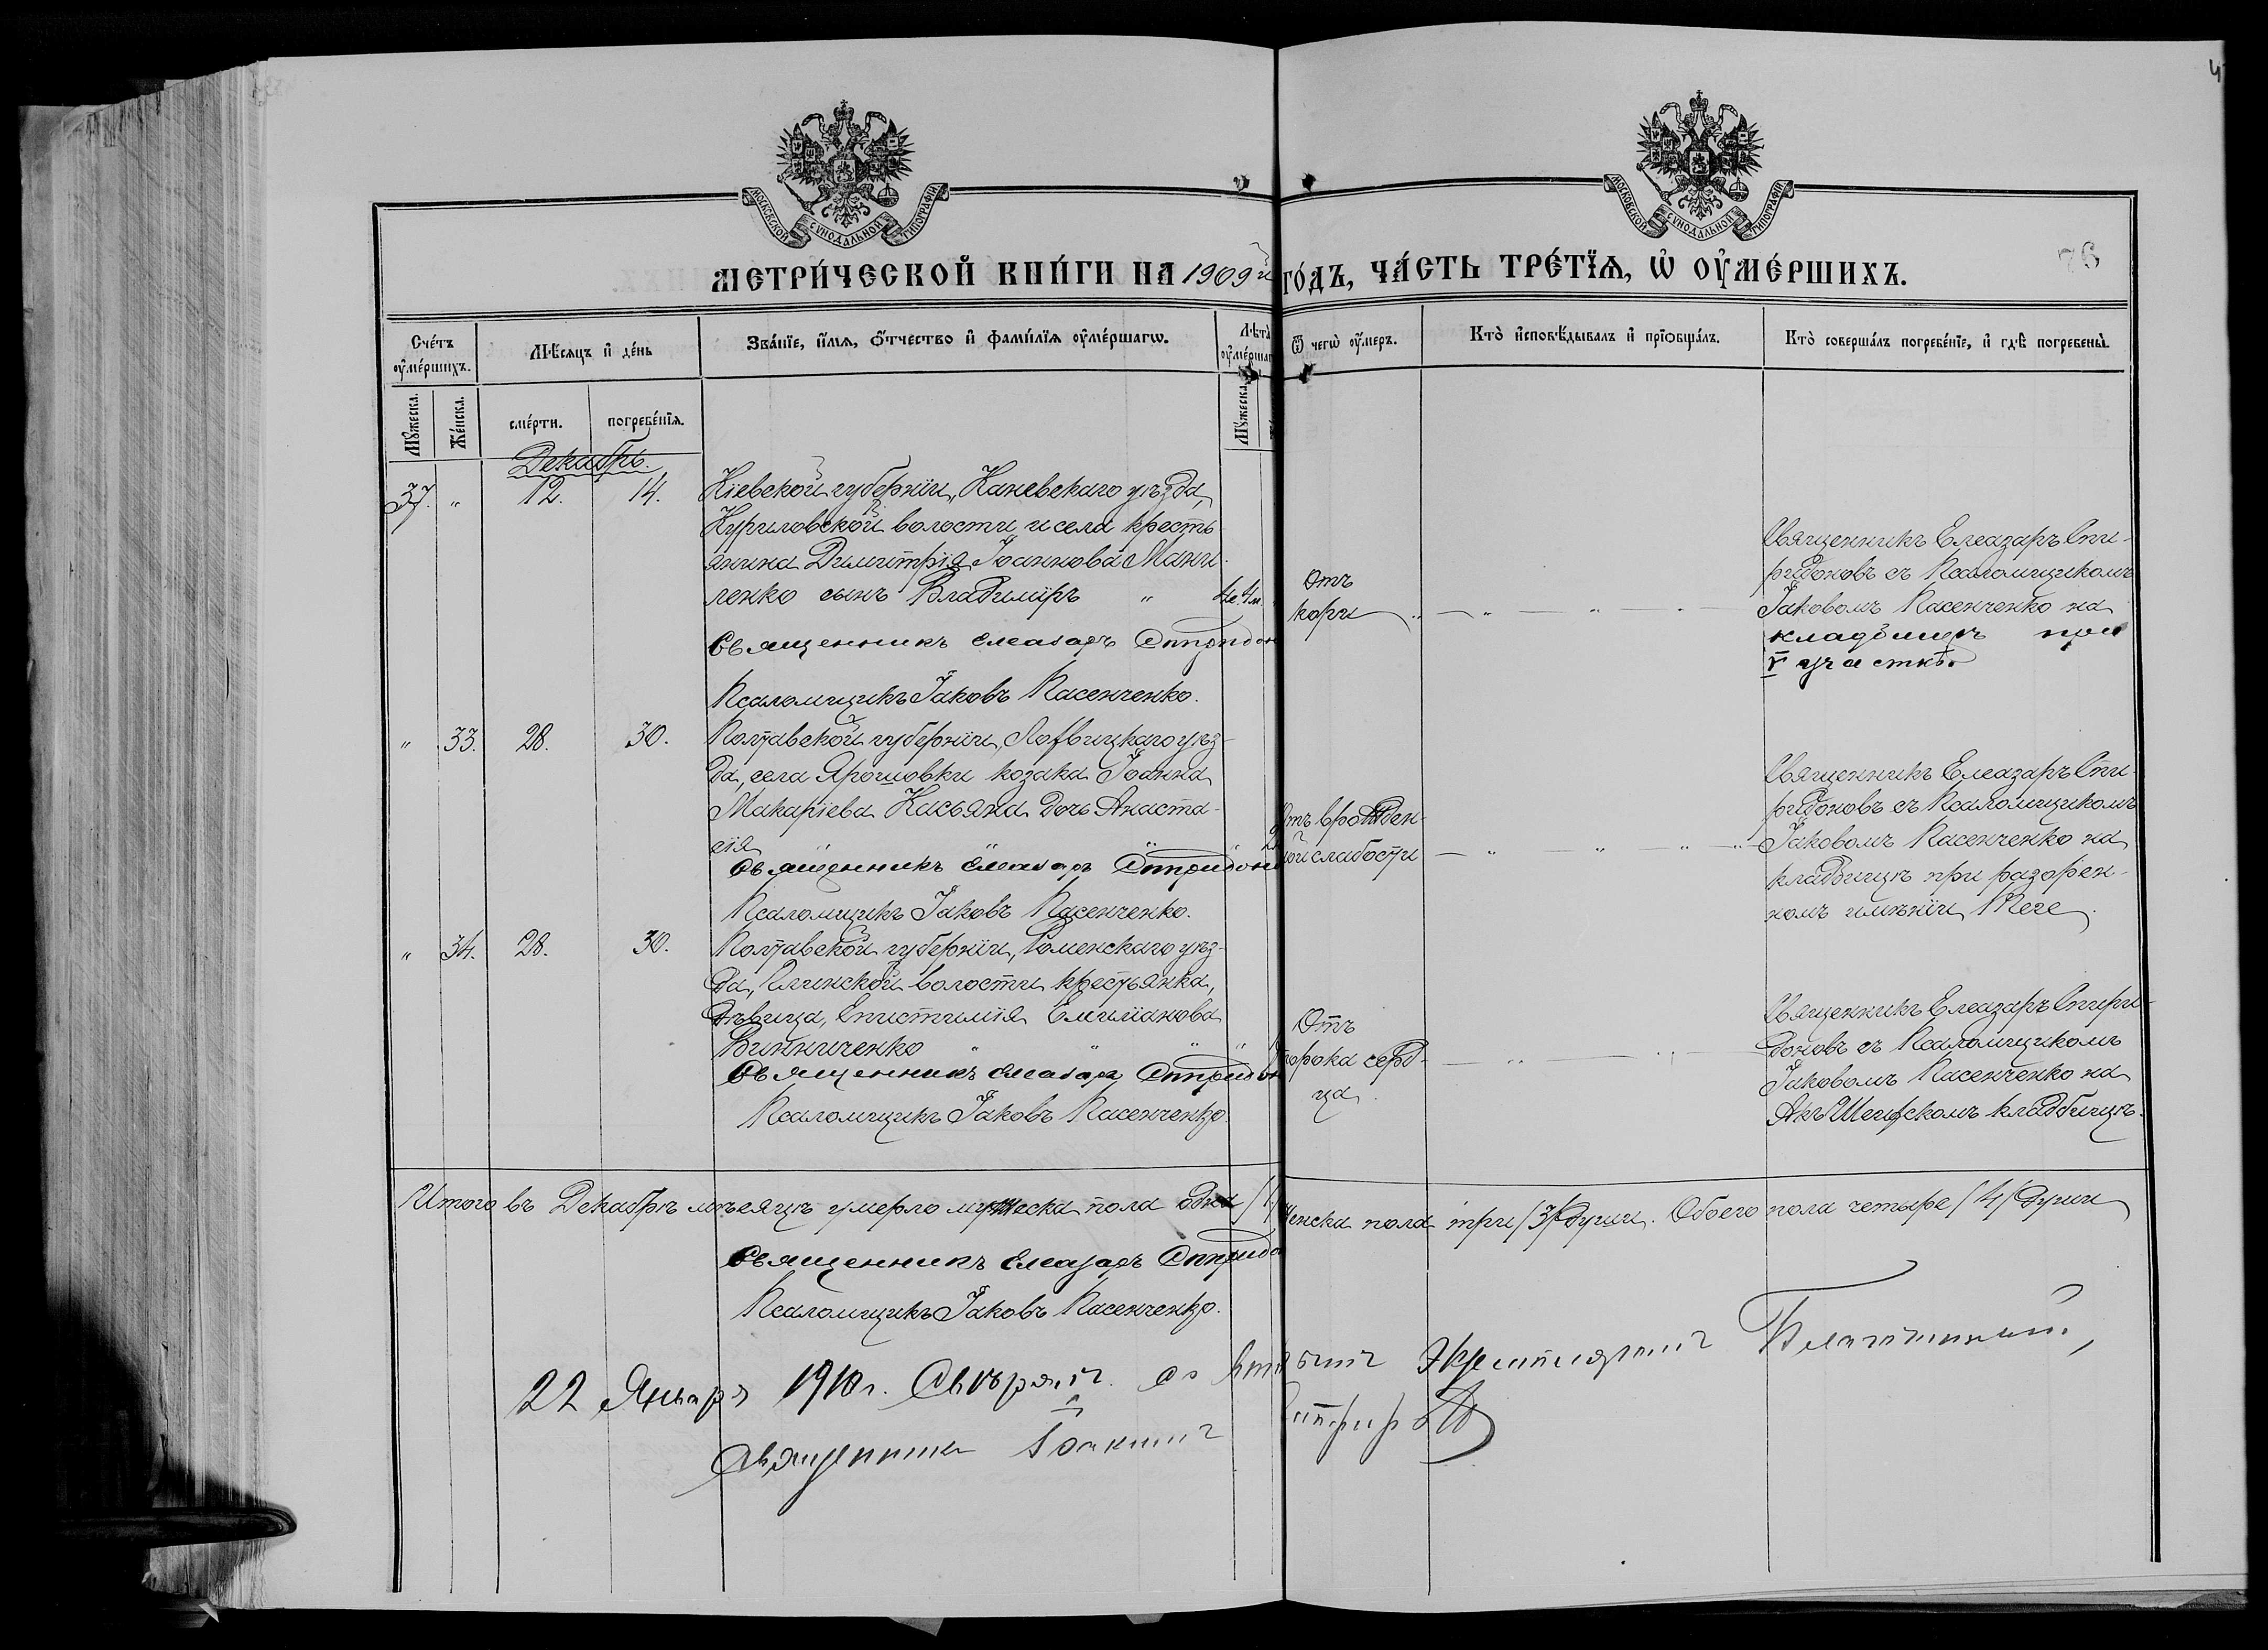 МОСКОВСКОЙ СУНОДАЛЬНОЙ ТИПОГРАФІИ
МОСКОВСКОЙ СУНОДАЛЬНОЙ ТИПОГРАФІИ
МЕТРИ́ЧЕСКОЙ КНИ́ГИ НА 1909й го́дъ, ЧА́СТЬ ТРЕ́ТІѦ, Ѡ ОУ҆МЕ́РШИХЪ.
76
Сче́тъ оу҆ме́ршихъ.
Мѣ́сѧцъ и҆ де́нь
Зва́нїе, и҆́мѧ, ѻ҆́тчество и҆ фами́лїѧ оу҆ме́ршагѡ.
Лѣта̀ оу҆ме́ршаг
Ѿ чегѡ̀ оу҆́меръ.
Кто̀ и҆сповѣ́дывалъ и҆ прїѡбща́лъ.
Кто̀ соверша́лъ погребе́нїе, и҆ гдѣ̀ погребены̀.
Мꙋ́жеска.
Же́нска.
сме́рти.
погребе́нїѧ.
Мꙋ́жеска.
Декабрь.
37. " 12. 14.
Кіевской губерніи, Каневскаго уѣзда,
Куриловской волости и села кресть
янина Димитрія Іоаннова Мани
ленко сынъ Владиміръ " 4м.
Священникъ Елеазаръ Спиридон
Псаломщикъ Іаковъ Пасенченко.
Отъ
кори
Священникъ Елеазаръ Спи-
ридоновъ съ Псаломщикомъ
Іаковомъ Пасенченко на
кладбищѣ при
V участкѣ.
" 33. 28. 30.
Полтавской губерніи, Лохвицкаго уѣз-
да, села Ярошовки козака Іоанна
Макаріева Касьяна дочь Анаста-
сія
Священникъ Елеазаръ Спиридоно
Псаломщикъ Іаковъ Пасенченко.
Отъ врожден-
ной слабости
Священникъ Елеазаръ Спи-
ридоновъ съ Псаломщикомъ
Іаковомъ Пасенченко на
кладбищѣ при разорен-
номъ имѣніи
" 34. 28. 30.
Полтавской губерніи, Роменскаго уѣз-
да, Глинской волости крестьянка,
дѣвица, Епистимія Емиліанова
Винниченко " " " "
Священникъ Елеазаръ Спиридон
Псаломщикъ Іаковъ Пасенченко
Отъ
порока серд-
ца.
Священникъ Елеазаръ Спири-
доновъ съ Псаломщикомъ
Іаковомъ Пасенченко на
кладбищѣ.
Итого въ Декабрѣ мѣсяцѣ умерло мужеска пола одна /1/ женска пола три /3/ души. Обоего пола четыре /4/ души
Священникъ Елеазаръ Спиридо
Псаломщикъ Іаковъ Пасенченко.
22 Января 1910 г. Свѣрялъ со вторымъ экземпляромъ Благочинный,
Священникъ Іоакимъ